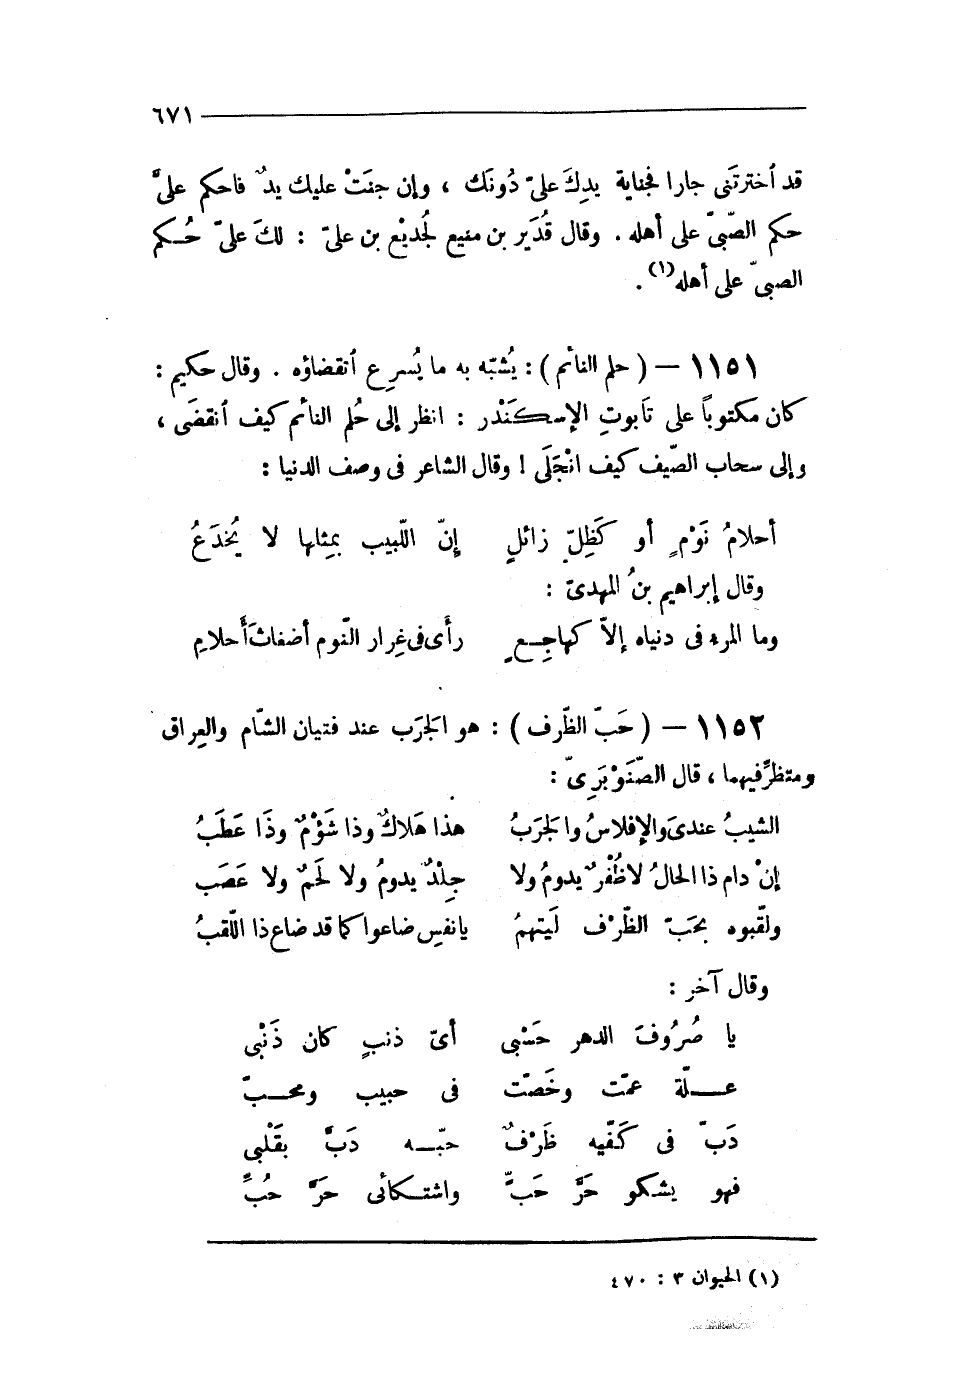 ٦٧١
قد أخترتَنى جارا فجناية يدِكَ علىّ دُونَك ، وإن جنَتْ عليك يدٌ فاحكم علىَّ
حكم الصّبىّ على أهله . وقال قُدَير بن منيع لجُديْع بن علىّ : لكَ علىّ حُكم
الصبىّ على أهله(١) .
١١٥١ — ( حلم النائم ) : يُشبّه به ما يُسرِع أنقضاؤه . وقال حكيم :
كان مكتوباً على تابوتِ الإسكَنْدر : انظر إلى حُلم النائم كيف أنقضَى ،
وإلى سحاب الصّيف كيف انْجَلَى ! وقال الشاعر فى وصف الدنيا :
أحلامُ نَوْمٍ أو كَظِلّ زائلٍ إنّ اللّبيب بمِثلها لا يُخدَعُ
وقال إبراهيم بنُ المهدىّ :
وما المرء فى دنياه إلاّ كهاجِعٍ رأى فى غِرار النّوم أضغاثَ أحلامِ
١١٥٢ — ( حَبّ الظّرف ) : هو الجَرَب عند فتيان الشّام والعِراق
ومتظرِّفيهما ، قال الصّنَوْبَرِىّ :
الشيبُ عندىَ والإفلاسُ والجَرَبُ هذا هَلاكٌ وذا شَؤْمٌ وذَا عَطَبُ
إنْ دام ذا الحالُ لا ظُفْرٌ يدومُ ولا جِلْدٌ يدومُ ولا لَحمٌ ولا عَصَب
ولقّبوه بحَبّ الظّرْف لَيتهمُ يا نفسِ ضاعوا كما قد ضاع ذا اللّقبُ
وقال آخر :
يا صُرُوفَ الدهر حَسْبى أىّ ذنبٍ كان ذَنْبى
علّة عمّت وخَصّت فى حبيب ومحبّ
دَبّ فى كَفّيه ظَرْفٌ حبّه دَبَّ بقَلْبى
فهو يشكو حَرَّ حَبٍّ واشتكائى حَرَّ حُبِّ
(١) الحيوان ٣ : ٤٧٠